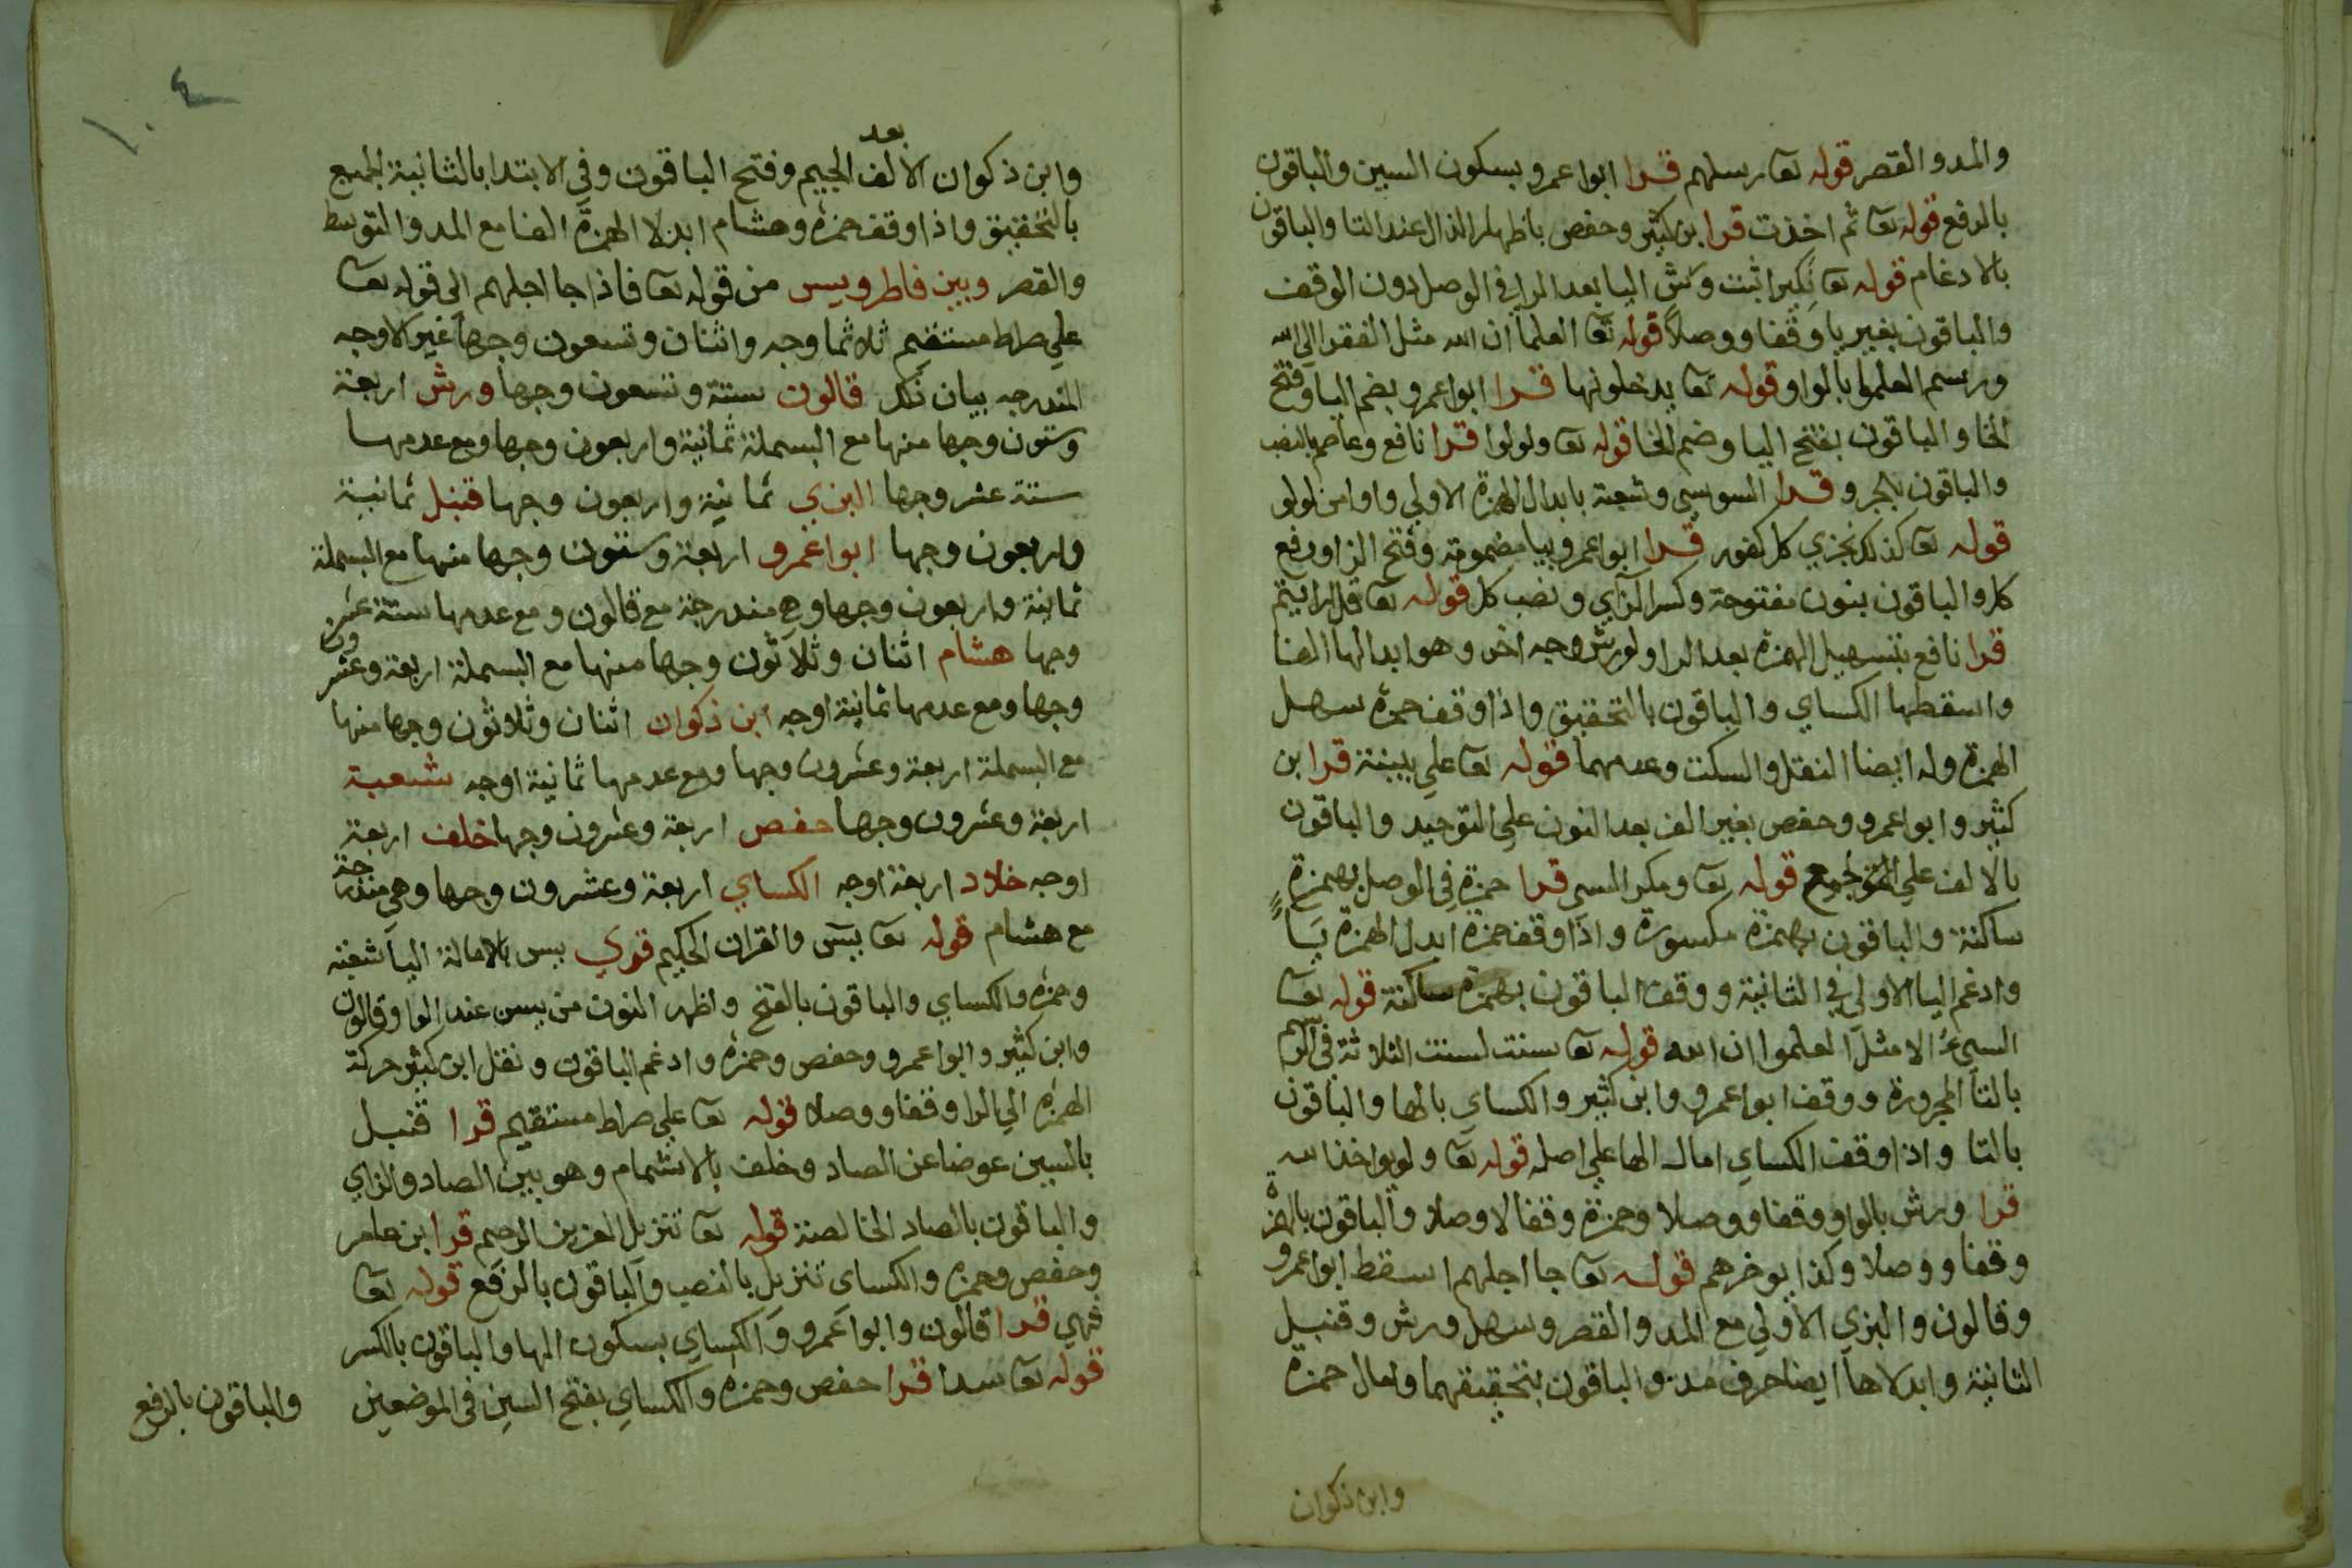 والمد والقصر قوله تعا رسلهم قرا ابوا عمرو بسكون السين والباقون
بالرفع قوله تعا ثم اخذت قرا ابن كثير وحفص باظهار الذال عند التا والباقون
بالادغام قوله تعا نكير اثبت ورش اليا بعد الرا في الوصل دون الوقف
والباقون بغير يا وقفا ووصلا قوله تعا العلما ان الله مثل الفقرا الى الله
ورسم العلموا بالواو قوله تعا يدخلونها قرا ابوا عمرو بضم اليا وفتح
الخا والباقون بفتح اليا وضم الخا قوله تعا ولولوا قرا نافع وعاصم بالنصب
والباقون بالجر وقرا السوسي وشعبة بابدال الهمزة الاولي واوا من لولو
قوله تعا كذلك نجزي كل كفور قرا ابوا عمرو بيا مضمومة وفتح الزا ورفع
كل والباقون بنون مفتوحة وكسر الزاي ونصب كل قوله تعا قل ارايتم
قرا نافع بتسهيل الهمزة بعد الرا ولورش وجه اخر وهو ابدالها الفا
واسقطها الكساي والباقون بالتحقيق واذا وقف حمزة سهل
الهمزة وله ايضا النقل والسكت وعدمهما قوله تعا علي بينة قرا ابن
كثير وابوا عمرو وحفص بغير الف بعد النون علي التوحيد والباقون
بالالف علي الجمع قوله تعا ومكر السي قرا حمزة في الوصل بهمزة
ساكنة والباقون بهمزة مكسورة واذا وقف حمزة ابدل الهمزة يا
وادغم اليا الاولي في الثانية ووقف الباقون بهمزة ساكنة قوله تعا
السيئ الا مثل العلموا ان الله قوله تعا سنت لسنت الثلاثة في الرسم
بالتا المجرورة ووقف ابوا عمرو وابن كثير والكساي بالها والباقون
بالتا واذا وقف الكساي امال الها علي اصله قوله تعا ولو يواخذ الله
قرا ورش بالواو وقفا ووصلا وحمزة وقفا لا وصلا والباقون بالهمزة
وقفا ووصلا وكذا يوخرهم قوله تعا جا اجلهم اسقط ابوا عمرو
وقالون والبزي الاولي مع المد والقصر وسهل ورش وقنبل
الثانية وابدلاها ايضا حرف مد والباقون بتحقيقهما وامال حمزة
وابن ذكوان
١٠٤
وابن ذكوان الالف بعد الجيم وفتح الباقون وفي الابتدا بالثانية الجميع
بالتحقيق واذا وقف حمزة وهشام ابدلا الهمزة الفا مع المد والتوسط
والقصر وبين فاطر ويس من قوله تعا فاذا جا اجلهم الى قوله تعا
علي صراط مستقيم ثلاثماوجه واثنان وتسعون وجها غير الاوجه
المندرجه بيان ذلك قالون ستة وتسعون وجها ورش اربعة
وستون وجها منها مع البسملة ثمانية واربعون وجها ومع عدمها
ستة عشر وجها البزي ثمانية واربعون وجها قنبل ثمانية
واربعون وجها ابوا عمرو اربعة وستون وجها منها مع البسملة
ثمانية واربعون وجها وهي مندرجة مع قالون ومع عدمها ستة عشر
وجها هشام اثنان وثلاثون وجها منها مع البسملة اربعة وعشرون
وجها ومع عدمها ثمانية اوجه ابن ذكوان اثنان وثلاثون وجها منها
مع البسملة اربعة وعشرون وجها ومع عدمها ثمانية اوجه شعبة
اربعة وعشرون وجها حفص اربعة وعشرون وجها خلف اربعة
اوجه خلاد اربعة اوجه الكساي اربعة وعشرون وجها وهي مندرجة
مع هشام قوله تعا يس والقران الحكيم قري يس بالامالة اليا شعبة
وحمزة والكساي والباقون بالفتح واظهر النون من يس عند الواو قالون
وابن كثير وابوا عمرو وحفص وحمزة وادغم الباقون ونقل ابن كثير حركة
الهمزة الي الرا وقفا ووصلا قوله تعا علي صراط مستقيم قرا قنبل
بالسين عوضا عن الصاد وخلف بالاشمام وهو بين الصاد والزاي
والباقون بالصاد الخالصة قوله تعا تنزيل العزيز الرحيم قرا ابن عامر
وحفص وحمزة والكساى تنزيل بالنصب والباقون بالرفع قوله تعا
فهي قرا قالون وابوا عمرو والكساي بسكون الها والباقون بالكسر
قوله تعا سدا قرا حفص وحمزة والكساي بفتح السين في الموضعين والباقون بالرفع